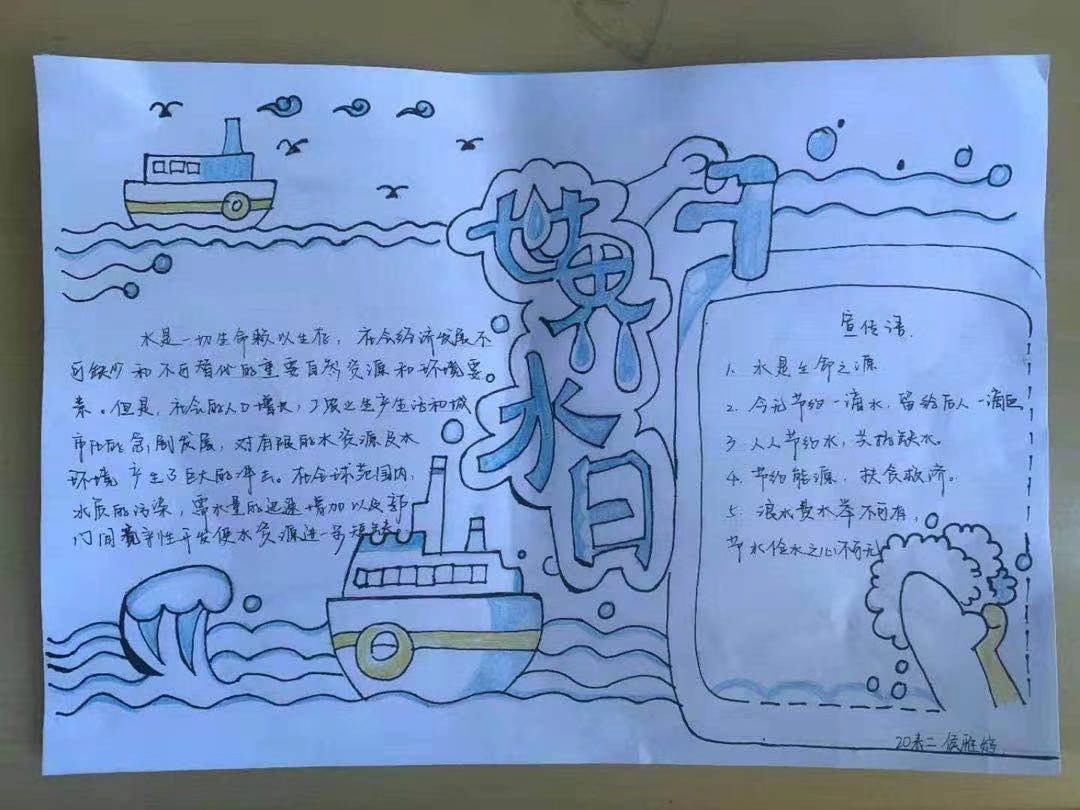 世界
水
日
水是一切生命赖以生存，社会经济发展不
可缺少和不可替代的重要自然资源和环境要
素。但是，社会的人口增长，工农业生产生活和城
市化的急剧发展，对有限的水资源及水
环境产生了巨大的冲击。在全球范围内，
水质的污染，需水量的迅速增加以及部
门间竞争性开发使水资源进一步短缺
宣传语
1. 水是生命之源
2. 今天节约一滴水，留给后人一滴血
3. 人人节约水，共抗缺水。
4. 节约能源，扶贫救济。
5. 浪水费水举不可有，
节水俭水之心不可无